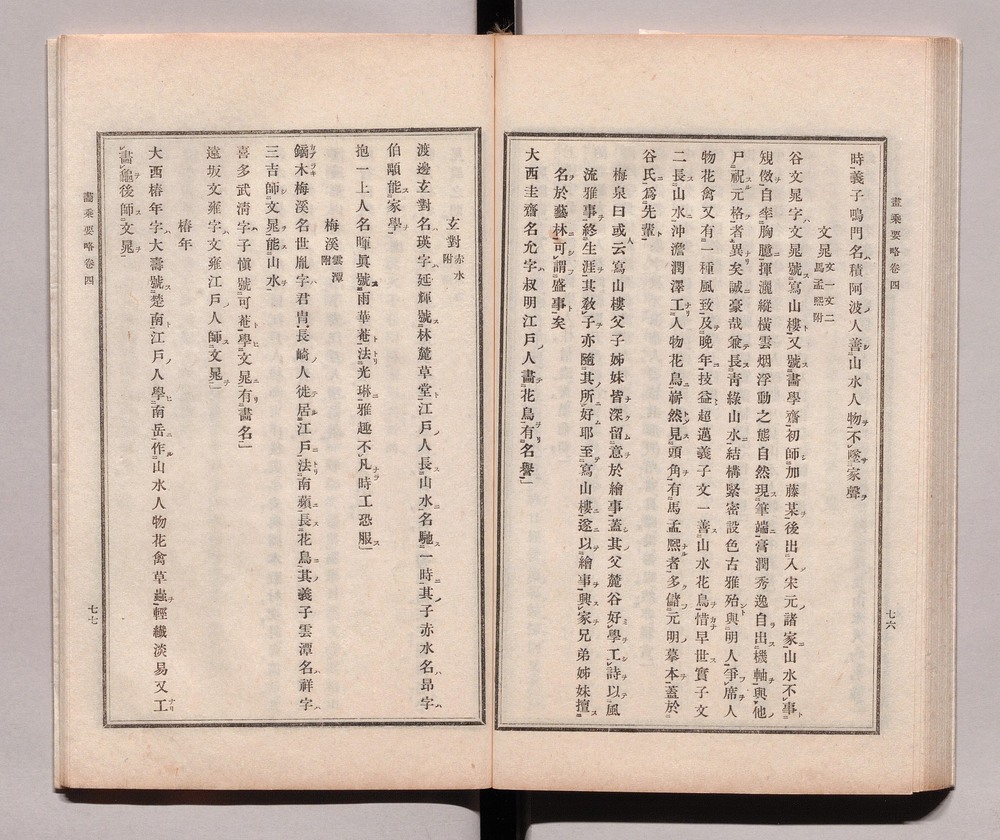 畫乘要略卷四
時義子鳴門名積阿波人善山水人物不墜家聲
文晁 文一文二 馬孟熙附
谷文晁字文晁號寫山樓又號畫學齋初師加藤某後出入宋元諸家山水不事
規倣自率胸臆揮灑縱橫雲烟浮動之態自然現筆端膏潤秀逸自出機軸與他
尸祝元格者異矣誠豪哉兼長靑綠山水結構緊密設色古雅殆與明人爭席人
物花禽又有一種風致及晚年技益超邁義子文一善山水花鳥惜早世實子文
二長山水沖澹潤澤工人物花鳥嶄然見頭角有馬孟熙者多儲元明摹本蓋於
谷氏爲先輩
梅泉曰或云寫山樓父子姊妹皆深留意於繪事蓋其父麓谷好學工詩以風
流雅事終生涯其敎子亦隨其所好耶至寫山樓遂以繪事興家兄弟姊妹擅
名於藝林可謂盛事矣
大西圭齋名允字叔明江戶人畫花鳥有名譽
七六
玄對 赤水附
渡邊玄對名瑛字延輝號林麓草堂江戶人長山水名馳一時其子赤水名昂字
伯顒能家學
抱一上人名暉眞號雨華菴法光琳雅趣不凡時工恐服
梅溪 雲潭附
鏑木梅溪名世胤字君冑長崎人徙居江戶法南蘋長花鳥其義子雲潭名祥字
三吉師文晁能山水
喜多武淸字子愼號可菴學文晁有畫名
遠坂文雍字文雍江戶人師文晁
椿年
大西椿年字大壽號楚南江戶人學南岳作山水人物花禽草蟲輕纖淡易又工
畫龜後師文晁
畫乘要略卷四
七七